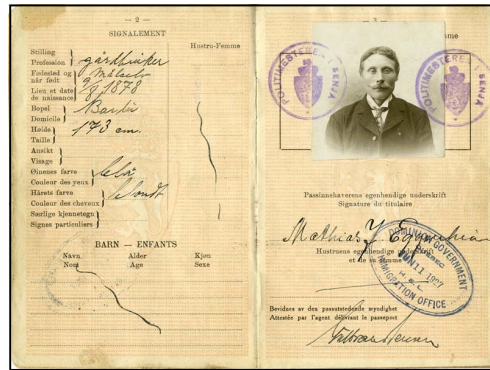 — 2 —
SIGNALEMENT
Hustru-Femme
Stilling
Profession
gårdbruker
Fødested og
når født
Målselv
1878
Lieu et date
de naissance
Bopel
Domicile
Bardu
Høide
Taille
173 cm.
Ansikt
Visage
Øinenes farve
Couleur des yeux
blå
Hårets farve
Couleur des cheveux
blondt
Særlige kjennetegn
Signes particuliers
BARN — ENFANTS
Navn Alder Kjøn
Nom Age Sexe
— 3 —
mme
POLITIMESTEREN I SENJA
POLITIMESTEREN I SENJA
Passinnehaverens egenhendige underskrift
Signature du titulaire
Mathias J.
Hustruens egenhendige underskrift
et de sa femme
DOMINION GOVERNMENT
QUEBEC
JUN 11 1927
IMMIGRATION OFFICE
Bevidnes av den passutstedende myndighet
Attestée par l'agent délivrant le passeport